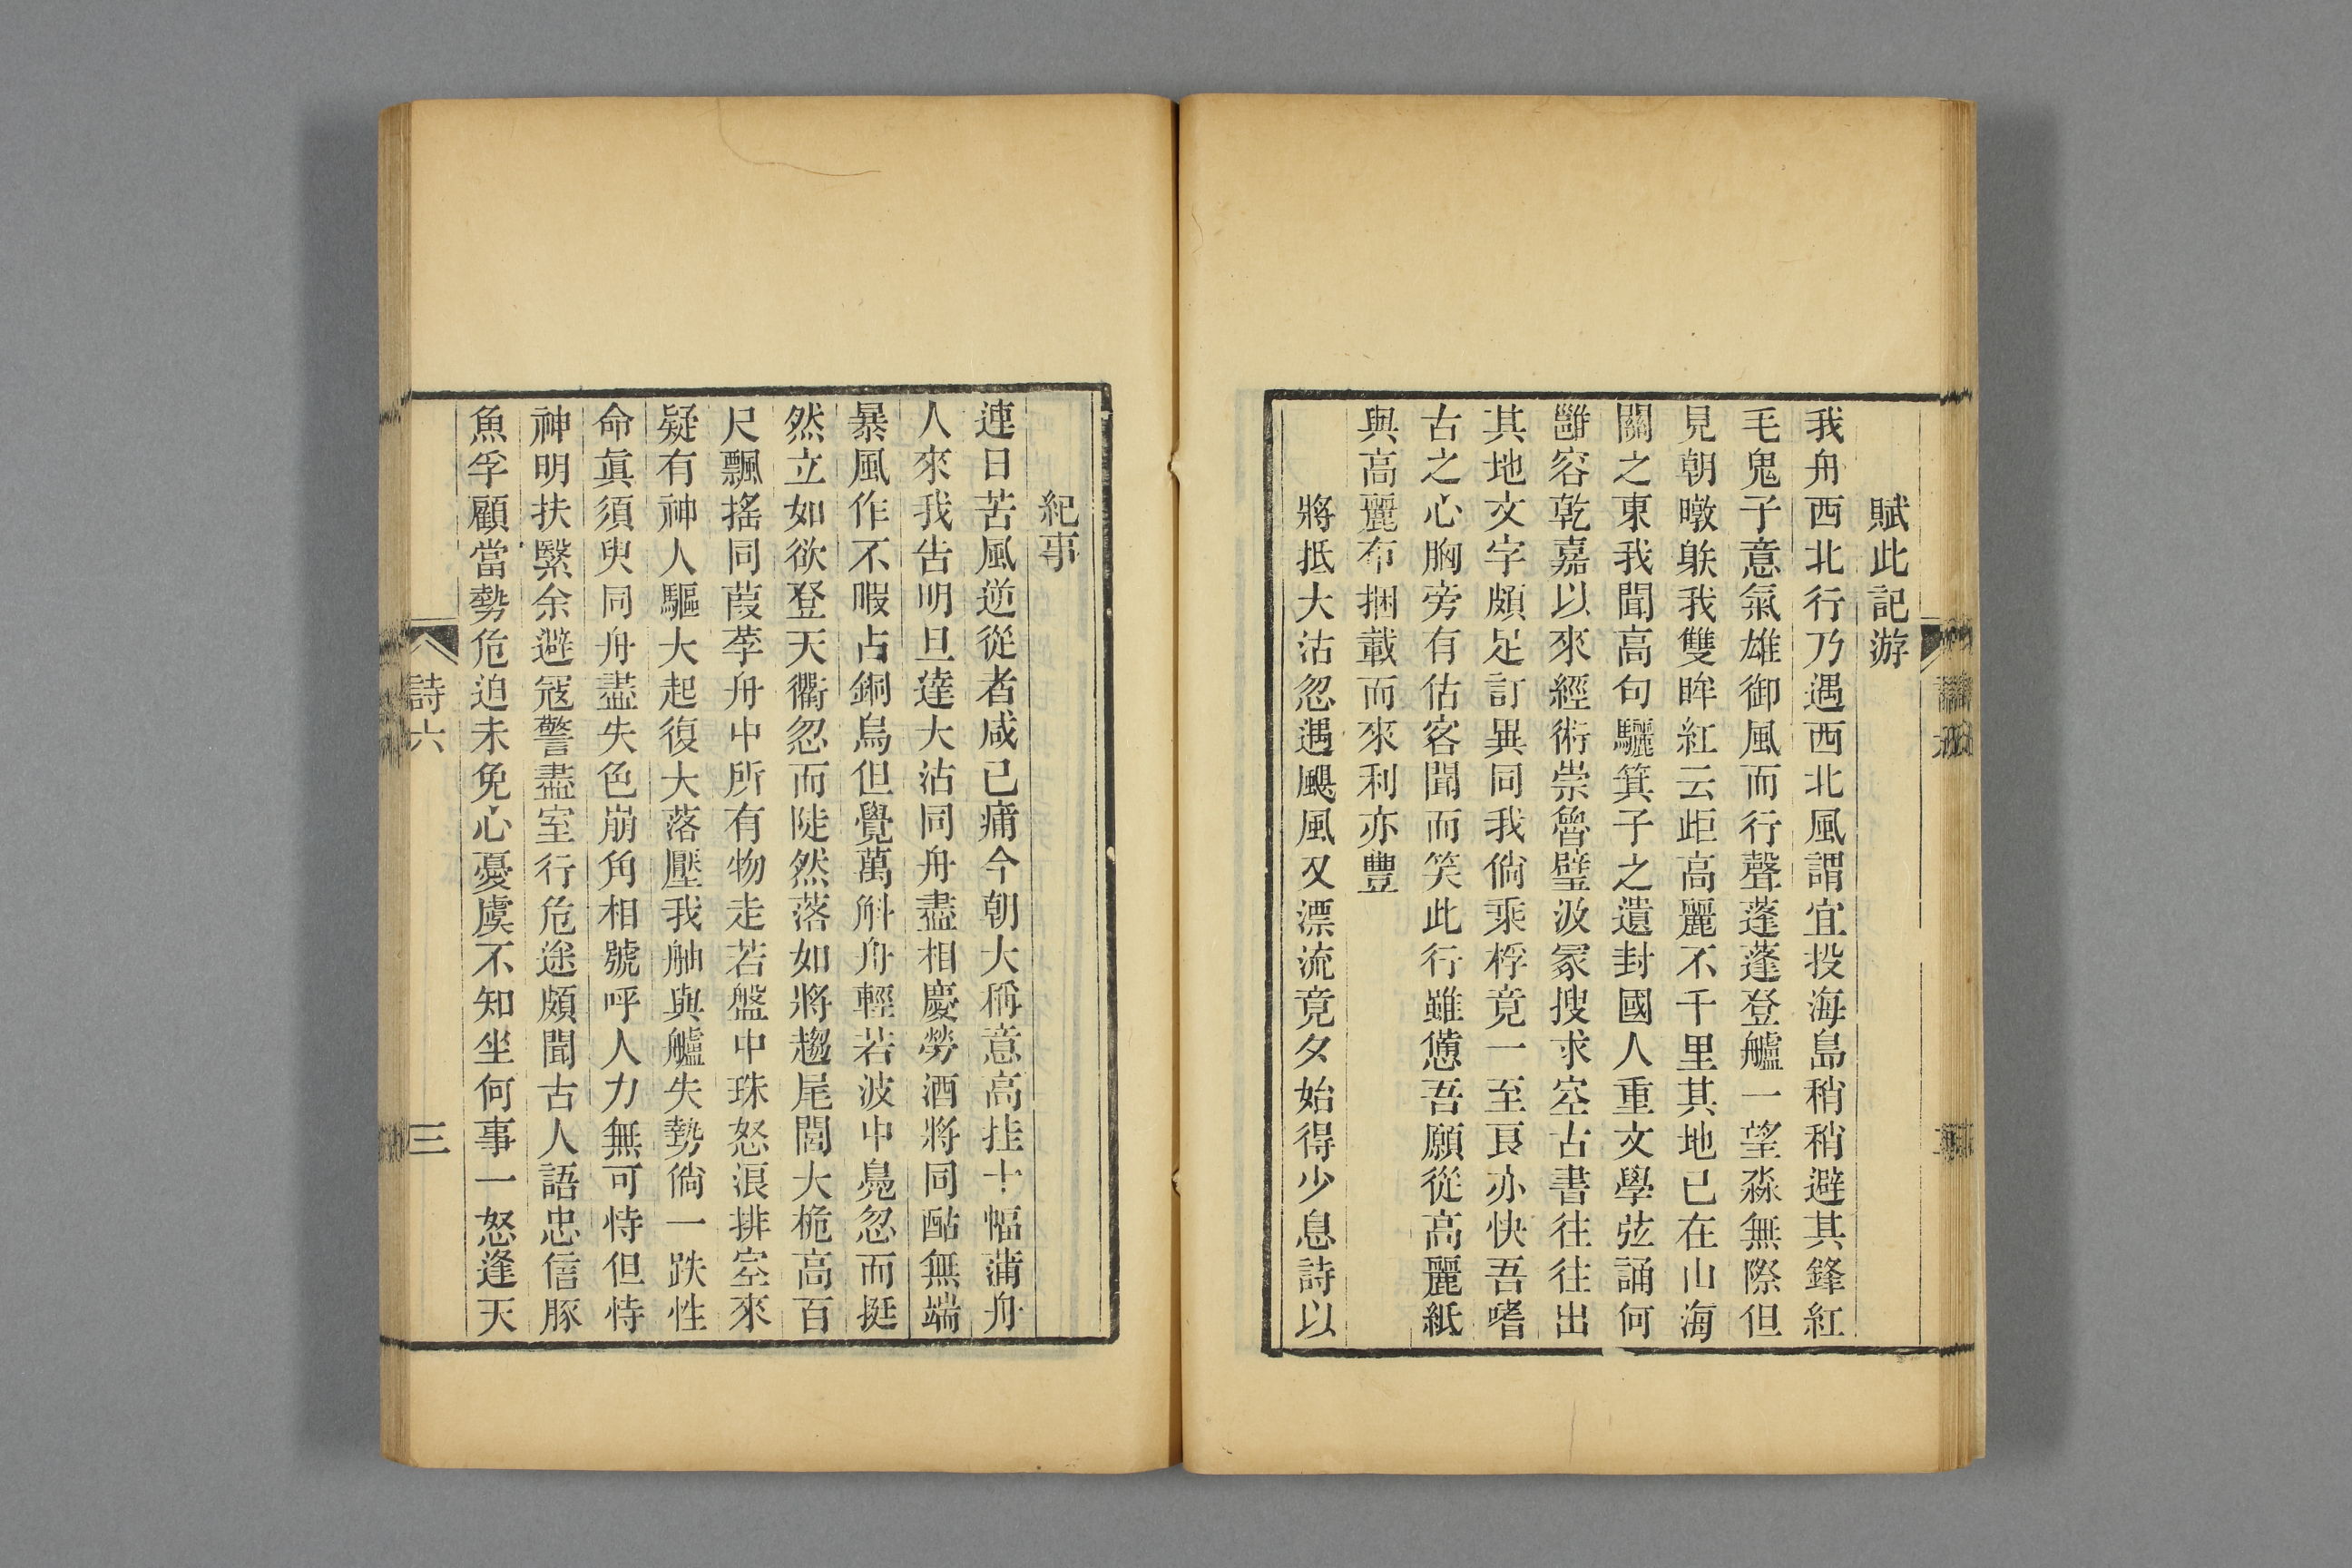 賦此記游
我舟西北行乃遇西北風謂宜投海島稍稍避其鋒紅
毛鬼子意氣雄御風而行聲蓬蓬登艫一望淼無際但
見朝暾躾我雙眸紅云歫高麗不千里其地已在山海
關之東我聞高句驪箕子之遺封國人重文學弦誦何
雝容乾嘉以來經術崇魯壁汲冢搜求空古書往往出
其地文字頗足訂異同我倘乘桴竟一至良亦快吾嗜
古之心胸旁有估客聞而笑此行雖憊吾願從高麗紙
與高麗布捆載而來利亦豐
將抵大沽忽遇颶風又漂流竟夕始得少息詩以
紀事
連日苦風逆從者咸已痡今朝大稱意高挂十幅蒲舟
人來我告明旦達大沽同舟盡相慶勞酒將同酤無端
暴風作不暇占銅烏但覺萬斛舟輕若波中鳧忽而挺
然立如欲登天衢忽而陡然落如將趨尾閭大桅高百
尺飄搖同葭莩舟中所有物走若盤中珠怒浪排空來
疑有神人驅大起復大落壓我舳與艫失勢倘一跌性
命眞須臾同舟盡失色崩角相號呼人力無可恃但恃
神明扶緊余避寇警盡室行危途頗聞古人語忠信豚
魚孚顧當勢危迫未免心憂虞不知坐何事一怒逢天
詩六
三